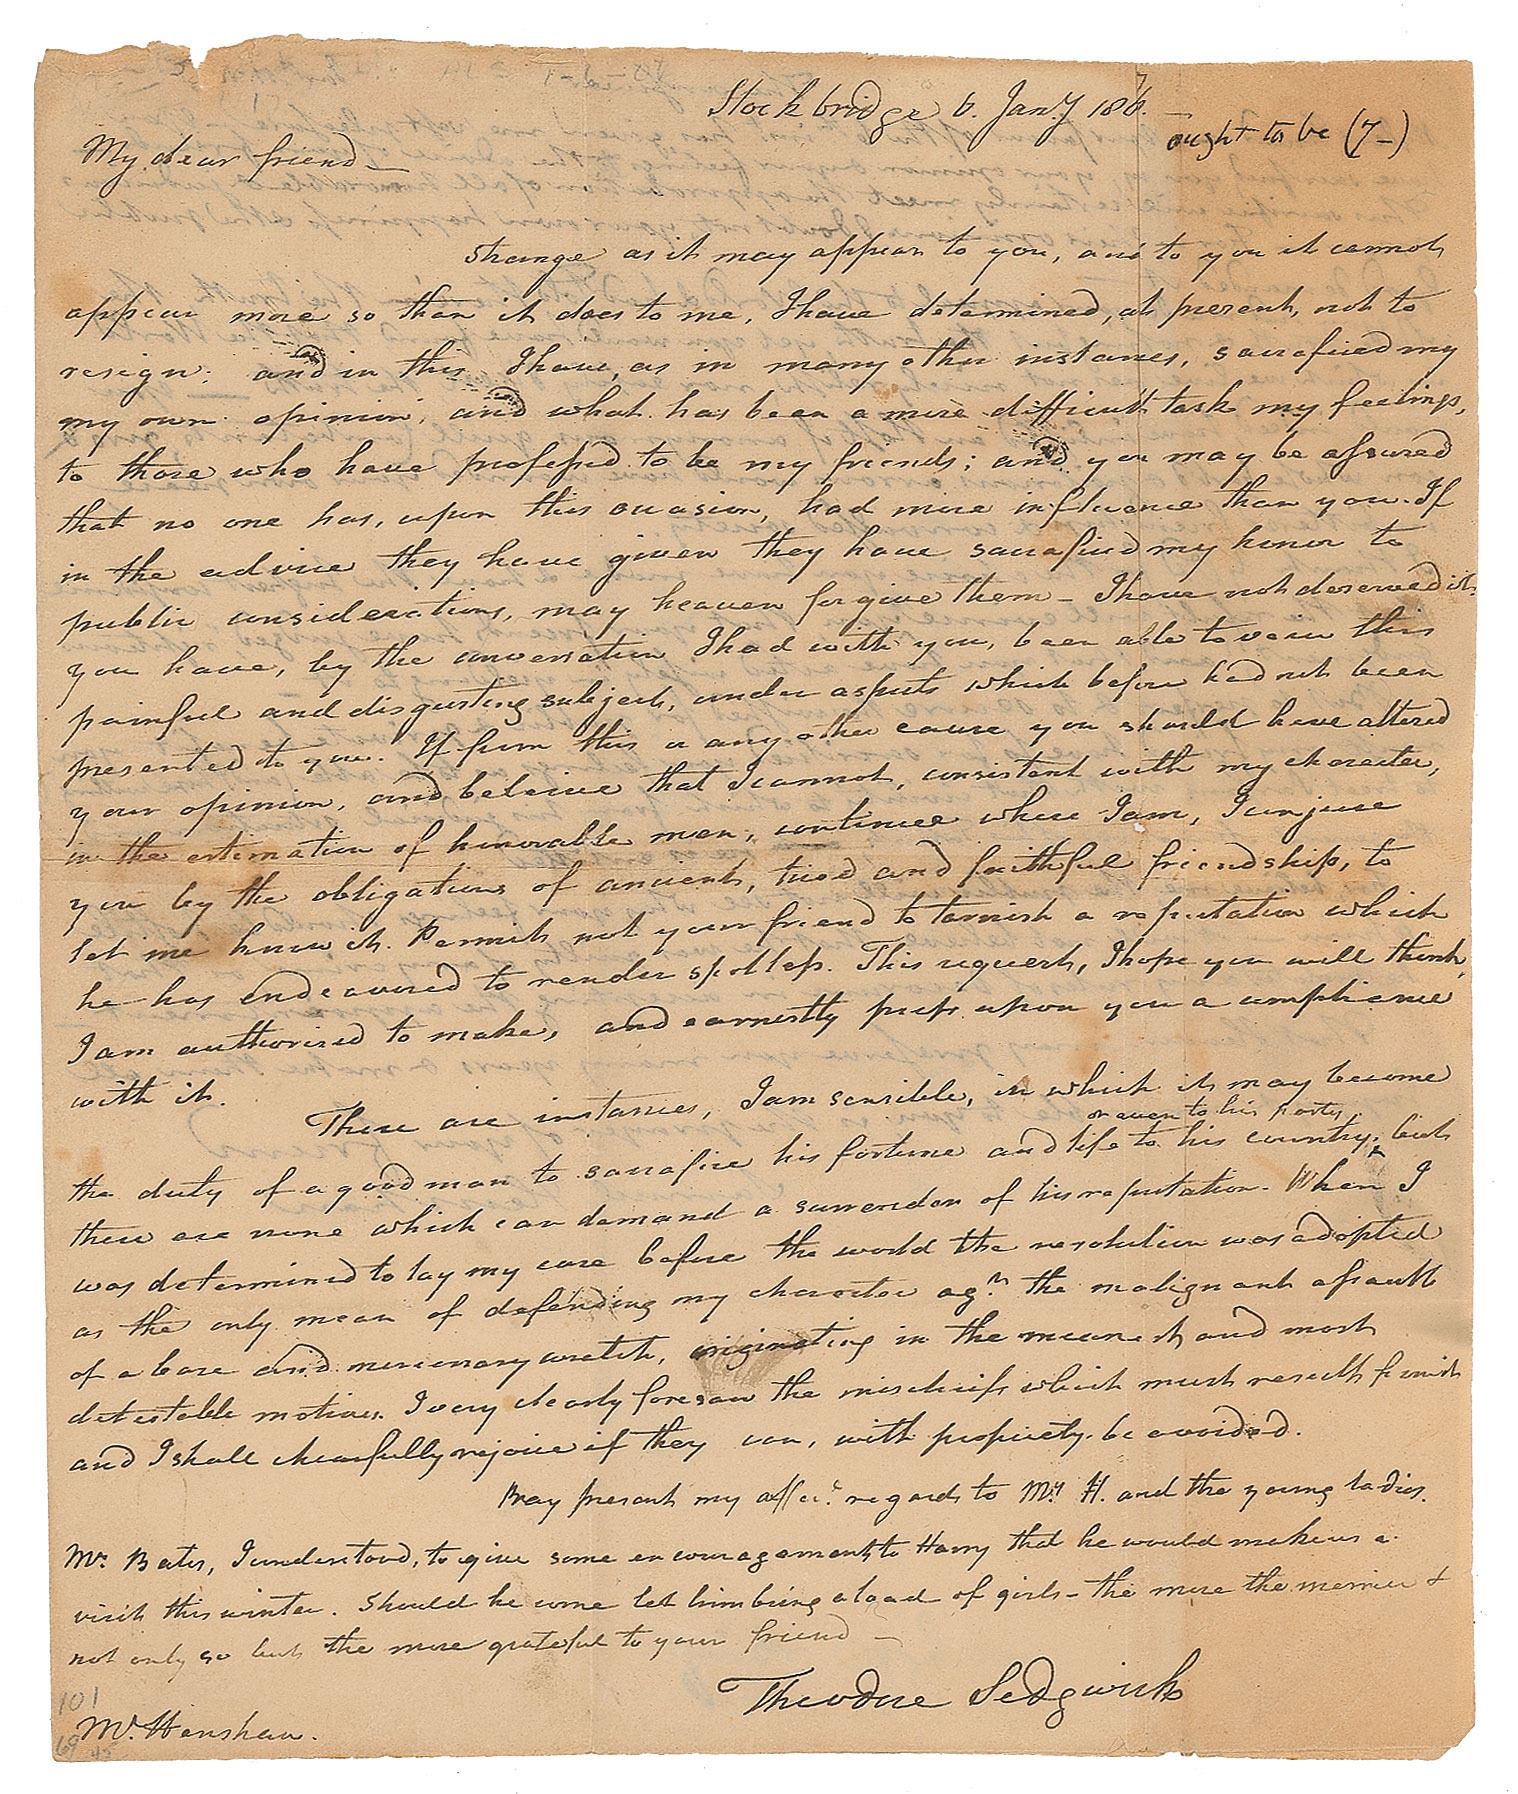 Stockbridge 6. Jany 1806.
7
ought to be (7-)
My dear friend_
Strange as it may appear to you, and to you it cannot
appear more so than it does to me, I have determined, at present, not to
resign: and in this I have, as in many other instances, sacrificed my
my own opinion, and what has been a more difficult task my feelings,
to those who have professed to be my friends; and you may be assured
that no one has, upon this occasion, had more influence than you. If
in the advice they have given they have sacrificed my honor to
public considerations, may heaven forgive them - I have not deserved it.
you have, by the conversation I had with you, been able to veiw this
painful and disgusting subject, under aspects which before had not been
presented to you. If from this or any other cause you should have altered
your opinion, and beleive that I cannot, consistent with my character,
in the estimation of honorable men, continue where I am, I conjure
you by the obligations of ancient, tried and faithful friendship, to
let me know it. Permit not your friend to tarnish a reputation which
he has endeavored to render spotless. This request, I hope you will think,
I am authorised to make, and earnestly press upon you a complience
with it.
There are instances, I am sensible, in which it may become
or even to his party,
the duty of a good man to sacrafice his fortune and life to his country, but
there are none which can demand a surrender of his reputation. When I
was determined to lay my case before the world the resolution was adopted
as the only mean of defending my character agt. the malignant assault
of a base and mercenary wretch, originating in the meanest and most
detestable motives. I very clearly foresaw the mischiefs which must result from it
and I shall chearfully rejoice if they can, with propriety be avoided.
Pray present my affec. regards to Mrs. H. and the young ladies.
Mr. Bates, I understood, to give some encouragement to Harry that he would make us a
visit this winter. Should he come let him bring a load of girls - the more the merrier &
not only so but the more grateful to your friend -
Theodore Sedgwick
101
Mr. Henshaw.
69 45